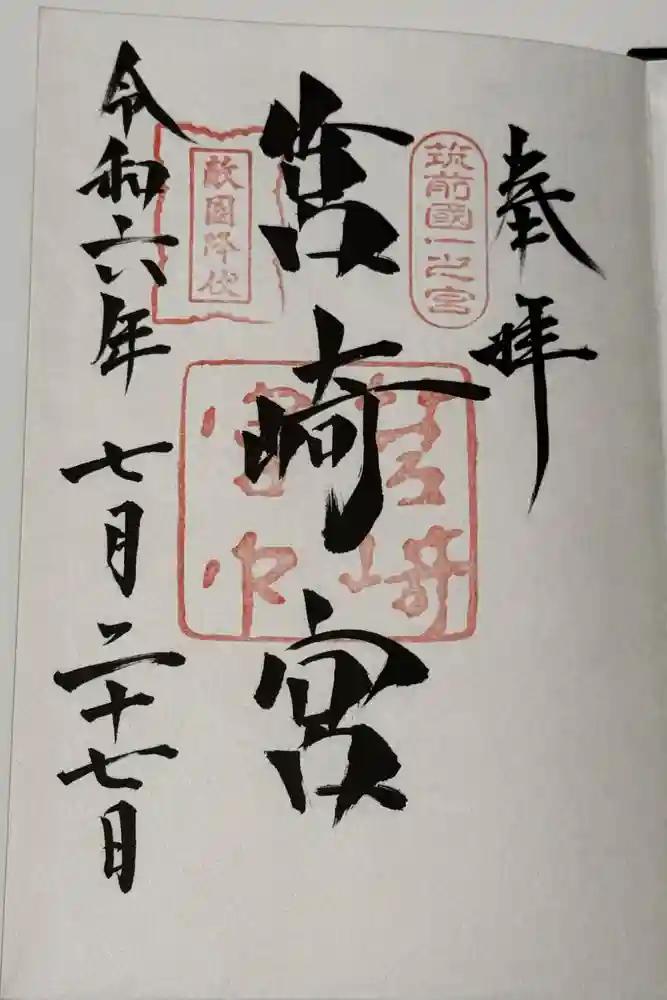 奉拝
筑前國一之宮
筥崎宮
敵國降伏
筥崎
宮印
令和六年 七月二十七日